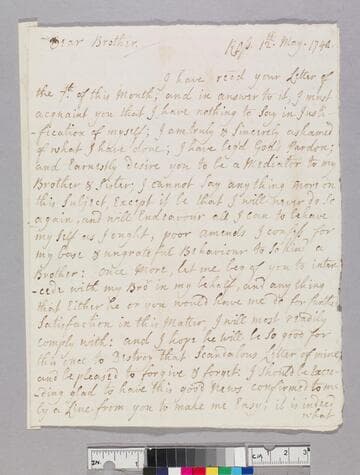 Dear Brother
Ross. 12th. May. 1742.
I have recd your Letter of
the 7th. of this Month; and in answer to it, I must
acquaint you that I have nothing to say in Justi-
fication of myself; I am truly & Sincerely ashamed
of what I have done; I have beg'd God's Pardon;
and Earnestly desire you to be a Mediator to my
Brother & Sister; I cannot say any thing more on
this Subject, Except it be that I will never do so
again, and will Endeavour all I can to behave
my self as I ought, poor amends I confess for
my base & ungrateful Behaviour to so kind a
Brother: once More, let me beg of you to inter-
cede with my Bror in my behalf, and any thing
that Either he or you would have me do for further
Satisfaction in this Matter, I will most readily
comply with; and I hope he will be so good for
this once to Destroy that Scandalous Letter of mine,
and be pleased to forgive & forget: I should be Excee-
ding glad to have this good News confirmed to me
by a Line from you to make me Easy; it is indeed
what